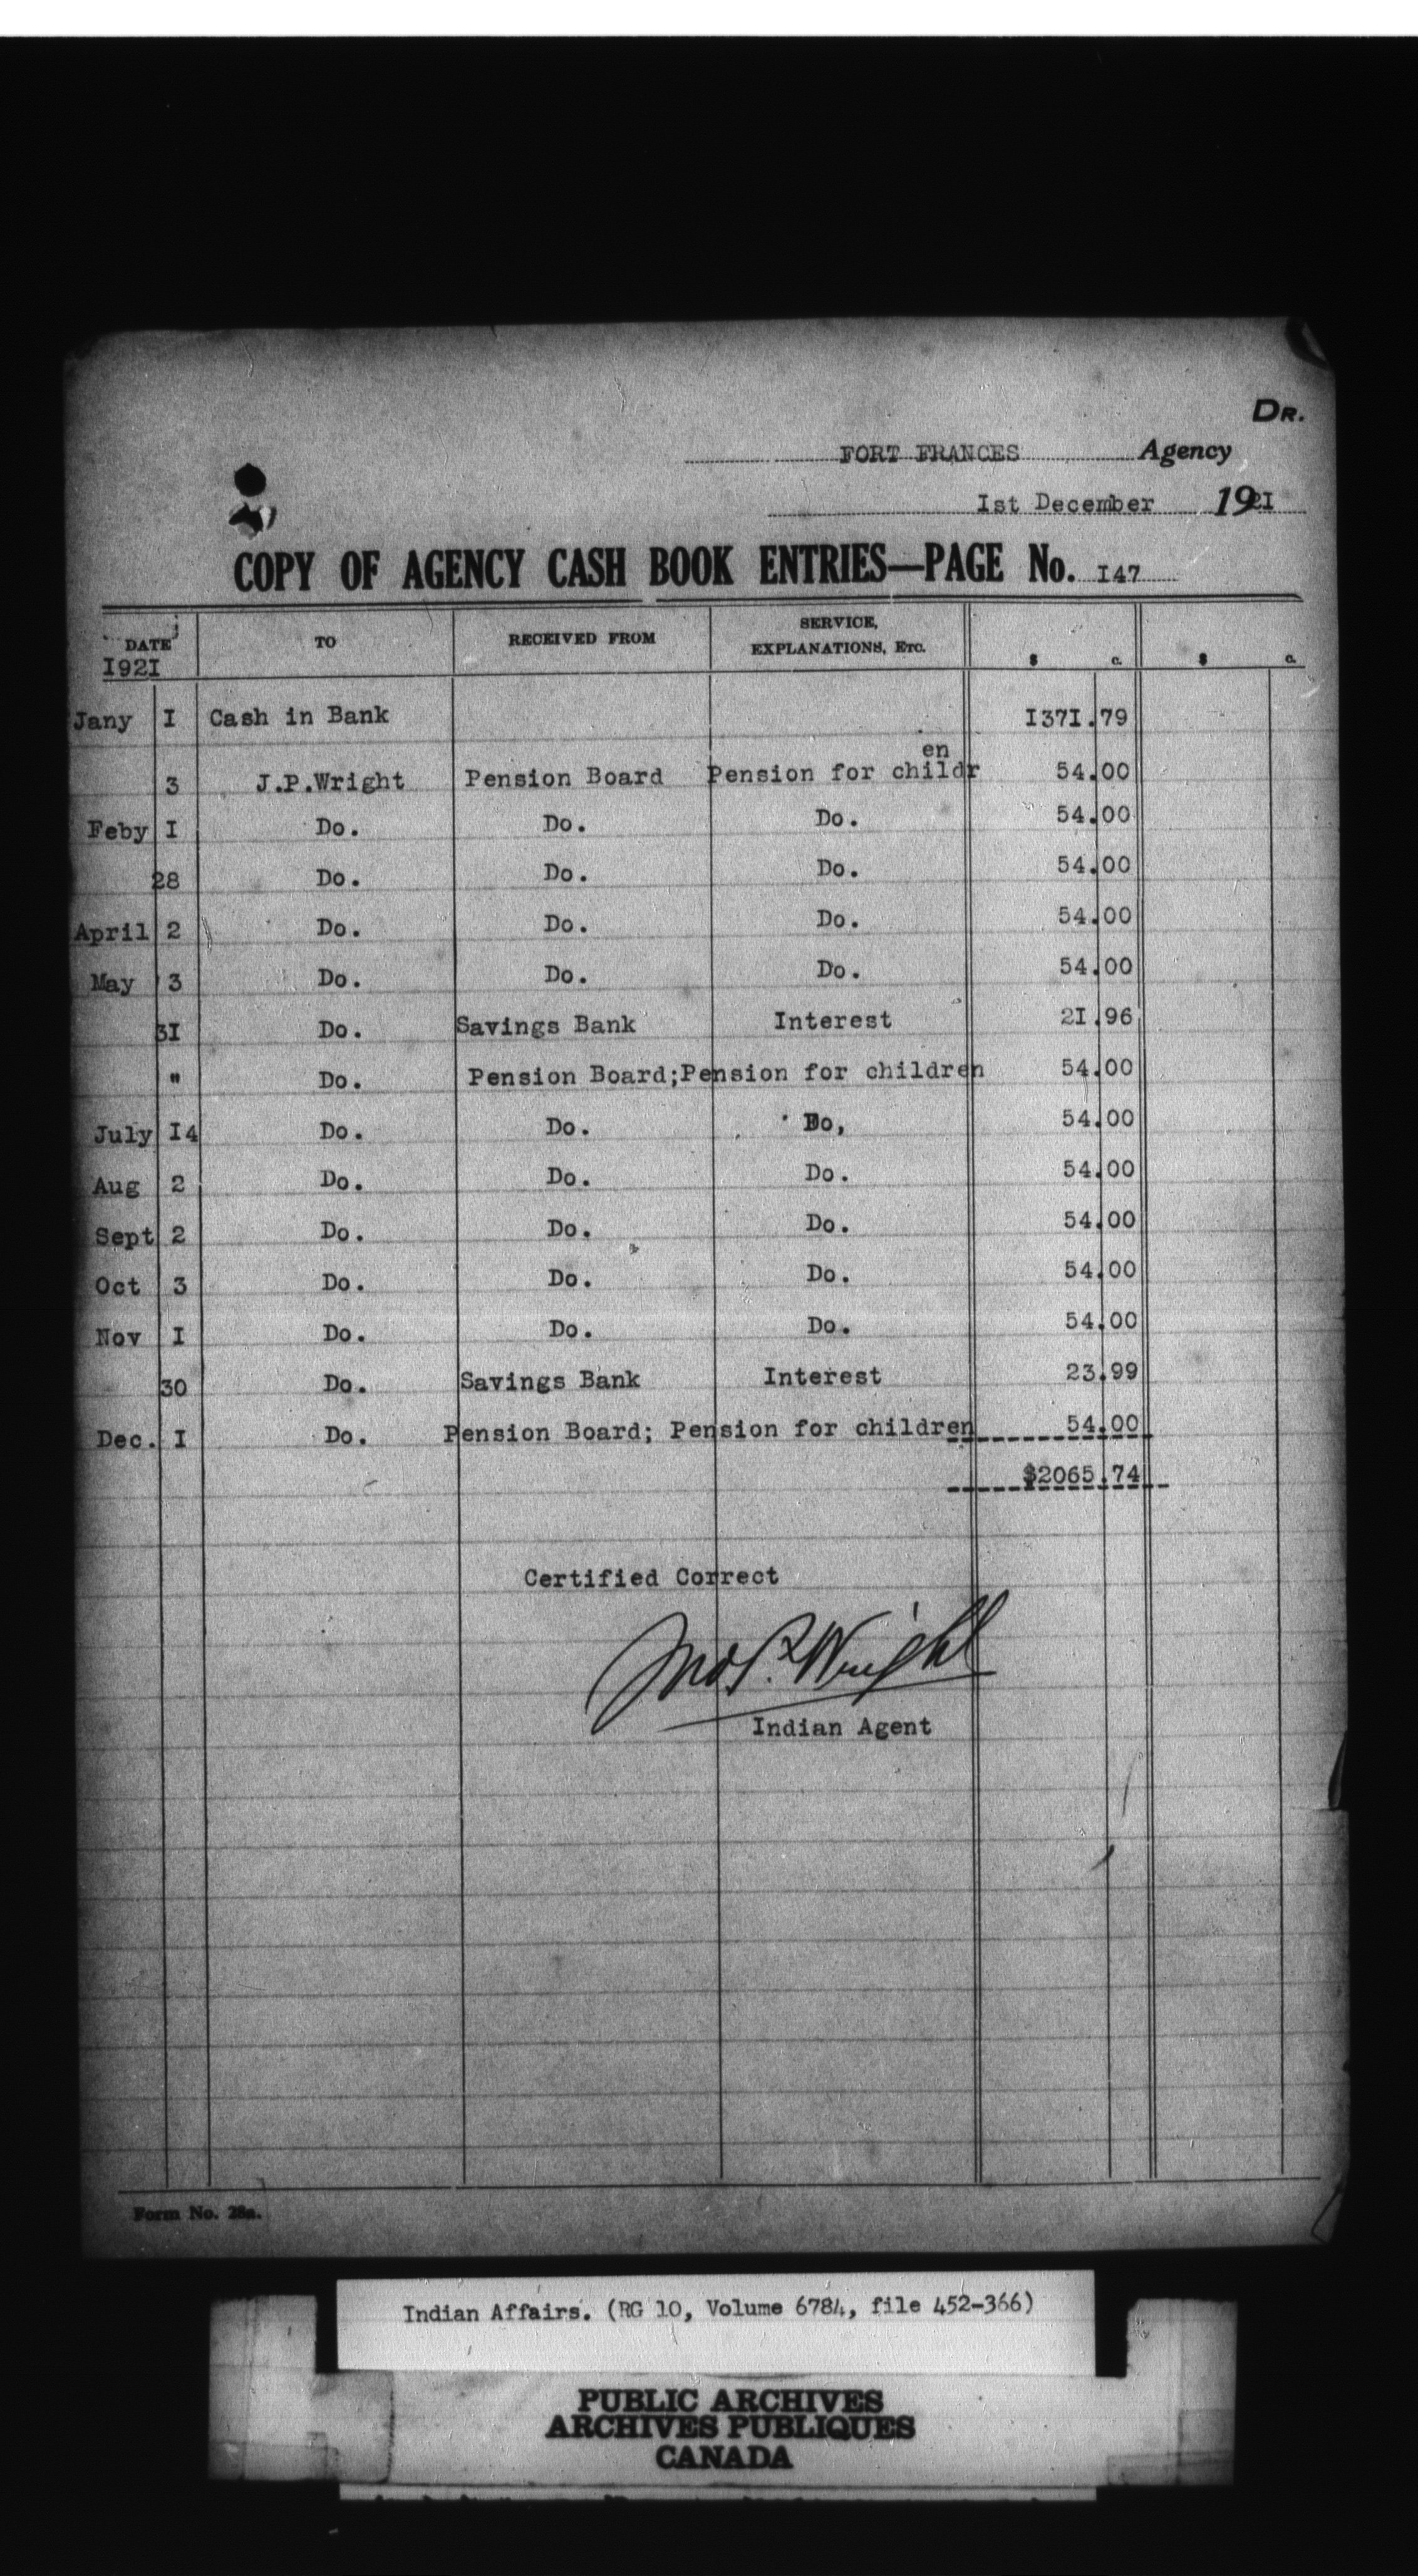 DR.
FORT FRANCES Agency
1st December 1921
COPY OF AGENCY CASH BOOK ENTRIES—PAGE No. 147
DATE TO RECEIVED FROM SERVICE, EXPLANATIONS, ETC. $ c. $ c.
1921
Jany 1 Cash in Bank 1371.79
en
3 J.P.Wright Pension Board Pension for childr 54.00
Feby 1 Do. Do. Do. 54.00
28 Do. Do. Do. 54.00
April 2 Do. Do. Do. 54.00
May 3 Do. Do. Do. 54.00
31 Do. Savings Bank Interest 21.96
" Do. Pension Board;Pension for children 54.00
July 14 Do. Do. Do, 54.00
Aug 2 Do. Do. Do. 54.00
Sept 2 Do. Do. Do. 54.00
Oct 3 Do. Do. Do. 54.00
Nov 1 Do. Do. Do. 54.00
30 Do. Savings Bank Interest 23.99
Dec. 1 Do. Pension Board; Pension for children 54.00
$2065.74
Certified Correct
Jno P. Wright
Indian Agent
Form No. 28a.
Indian Affairs. (RG 10, Volume 6784, file 452-366)
PUBLIC ARCHIVES
ARCHIVES PUBLIQUES
CANADA